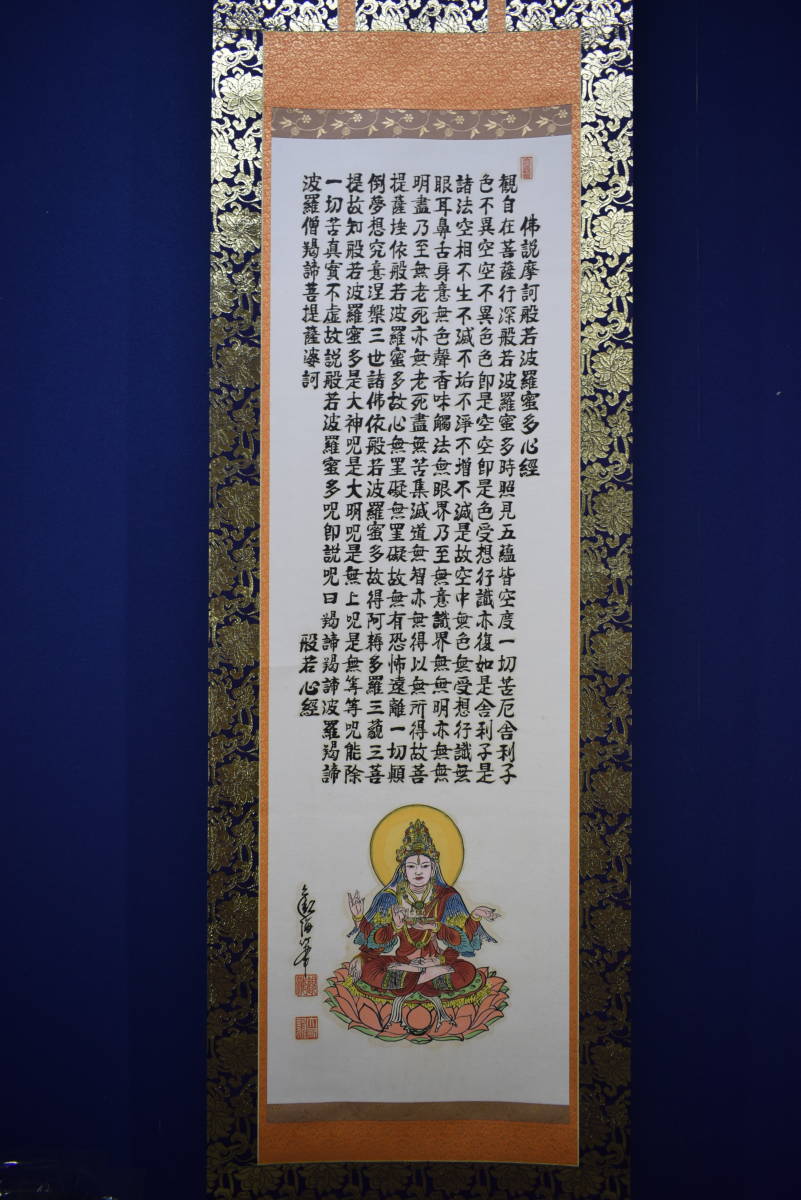 佛説摩訶般若波羅蜜多心經
観自在菩薩行深般若波羅蜜多時照見五蘊皆空度一切苦厄舎利子
色不異空空不異色色即是空空即是色受想行識亦復如是舎利子是
諸法空相不生不滅不垢不淨不増不減是故空中無色無受想行識無
眼耳鼻舌身意無色聲香味觸法無眼界乃至無意識界無無明亦無無
明盡乃至無老死亦無老死盡無苦集滅道無智亦無得以無所得故菩
提薩埵依般若波羅蜜多故心無罣礙無罣礙故無有恐怖遠離一切顛
倒夢想究竟涅槃三世諸佛依般若波羅蜜多故得阿耨多羅三藐三菩
提故知般若波羅蜜多是大神呪是大明呪是無上呪是無等等呪能除
一切苦真實不虚故説般若波羅蜜多呪即説呪曰羯諦羯諦波羅羯諦
波羅僧羯諦菩提薩婆訶
般若心經